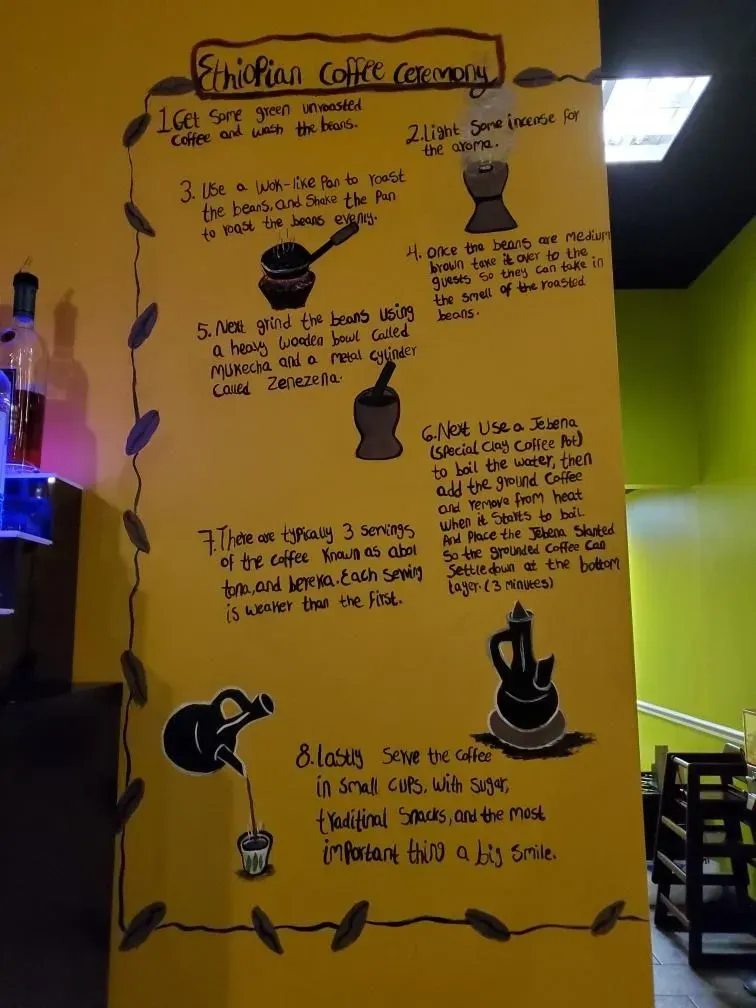 Ethiopian Coffee Ceremony
1. Get some green unroasted
coffee and wash the beans.
2. Light some incense for
the aroma.
3. Use a wok-like Pan to roast
the beans, and Shake the Pan
to roast the beans evenly.
4. Once the beans are medium
brown take it over to the
guests so they can take in
the smell of the roasted
beans.
5. Next grind the beans using
a heavy wooden bowl called
Mukecha and a metal cylinder
called Zenezena.
6. Next Use a Jebena
(Special Clay Coffee Pot)
to boil the water, then
add the ground Coffee
and remove from heat
when it starts to boil.
And Place the Jebena Slanted
so the grounded coffee can
settle down at the bottom
layer. (3 minutes)
7. There are typically 3 servings
of the coffee known as abol
tona, and bereka. Each serving
is weaker than the first.
8. Lastly serve the coffee
in small cups, with sugar,
traditinal snacks, and the most
important thing a big smile.